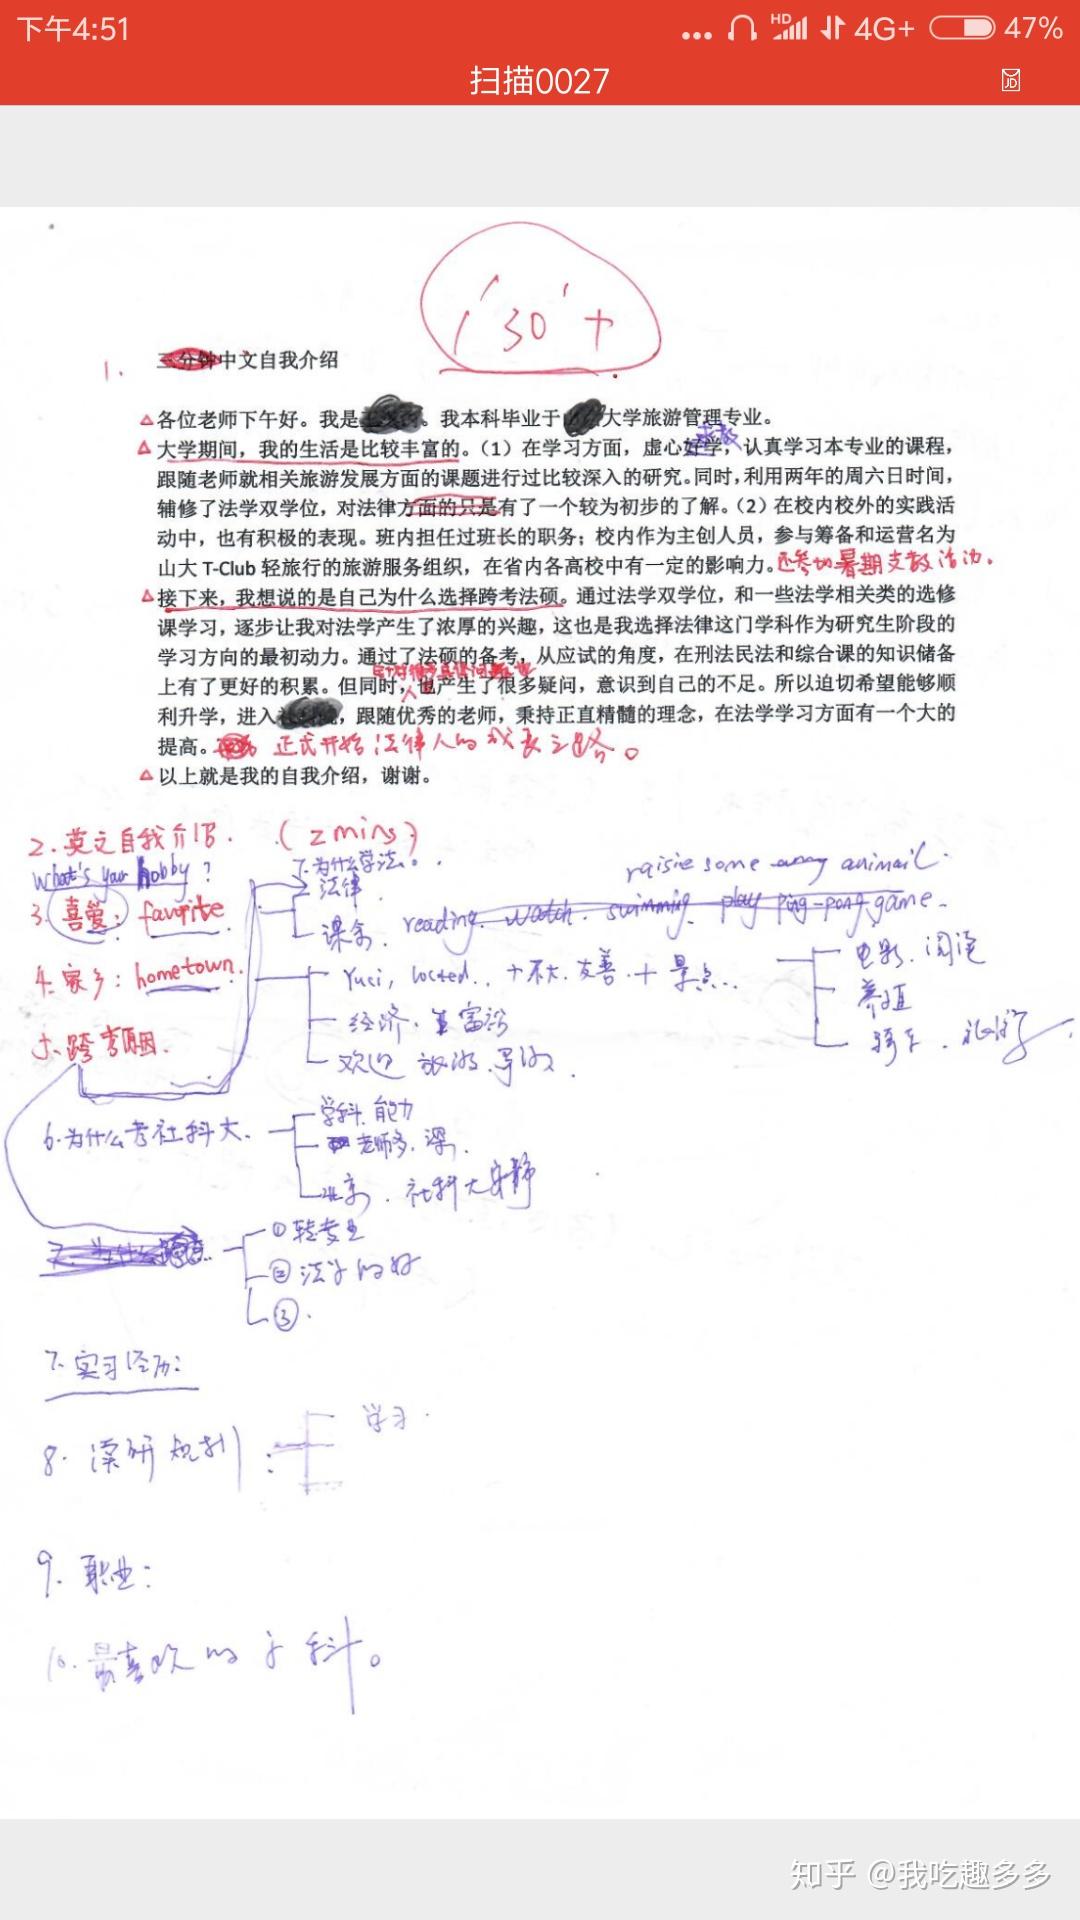 下午4:51
... HD 4G+ 47%
扫描0027
1'30'+
1. 三分钟中文自我介绍
△各位老师下午好。我是 。我本科毕业于 大学旅游管理专业。
△大学期间，我的生活是比较丰富的。（1）在学习方面，虚心好学，认真学习本专业的课程，
跟随老师就相关旅游发展方面的课题进行过比较深入的研究。同时，利用两年的周六日时间，
辅修了法学双学位，对法律方面的只是有了一个较为初步的了解。（2）在校内校外的实践活
动中，也有积极的表现。班内担任过班长的职务；校内作为主创人员，参与筹备和运营名为
山大 T-Club 轻旅行的旅游服务组织，在省内各高校中有一定的影响力。还参加暑期支教活动。
△接下来，我想说的是自己为什么选择跨考法硕。通过法学双学位，和一些法学相关类的选修
课学习，逐步让我对法学产生了浓厚的兴趣，这也是我选择法律这门学科作为研究生阶段的
学习方向的最初动力。通过了法硕的备考，从应试的角度，在刑法民法和综合课的知识储备
上有了更好的积累。但同时，也产生了很多疑问，意识到自己的不足。所以迫切希望能够顺
利升学，进入 ，跟随优秀的老师，秉持正直精髓的理念，在法学学习方面有一个大的
提高。 正式开始法律人的成长之路。
△以上就是我的自我介绍，谢谢。
2. 英文自我介绍. (2 mins)
What's your hobby?
1.为什么学法。
2.法律
raisie some animail.
3. 喜爱: favourite
课余. reading. watch. swimming. play ping-pong game.
4. 家乡: hometown.
Yuci, located.. 十不大.友善.十景点...
电影.阅读
经济.富裕
养殖
5. 跨考原因.
欢迎 旅游.导游.
骑车. 旅游
6.为什么考社科大.
学科.能力
老师多.深.
北京. 社科大安静
7.为什么跨考.
①转专业
②法学的好
③.
7. 实习经历:
8. 读研规划:
学习.
9. 职业:
10.最喜欢的学科。
知乎 @我吃趣多多